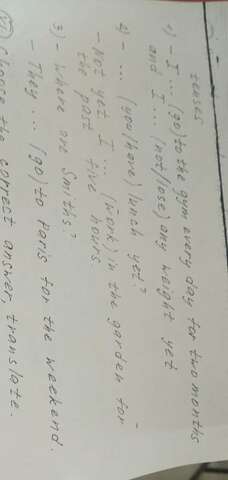 tenses
1) - I ... (go) to the gym every day for two months
and I ... (not/lose) any weight yet
2) - ... (you/have) lunch yet?
- Not yet. I ... (work) in the garden for
the past five hours.
3) - Where are Smiths?
- They ... (go) to Paris for the weekend.
Choose the correct answer, translate.